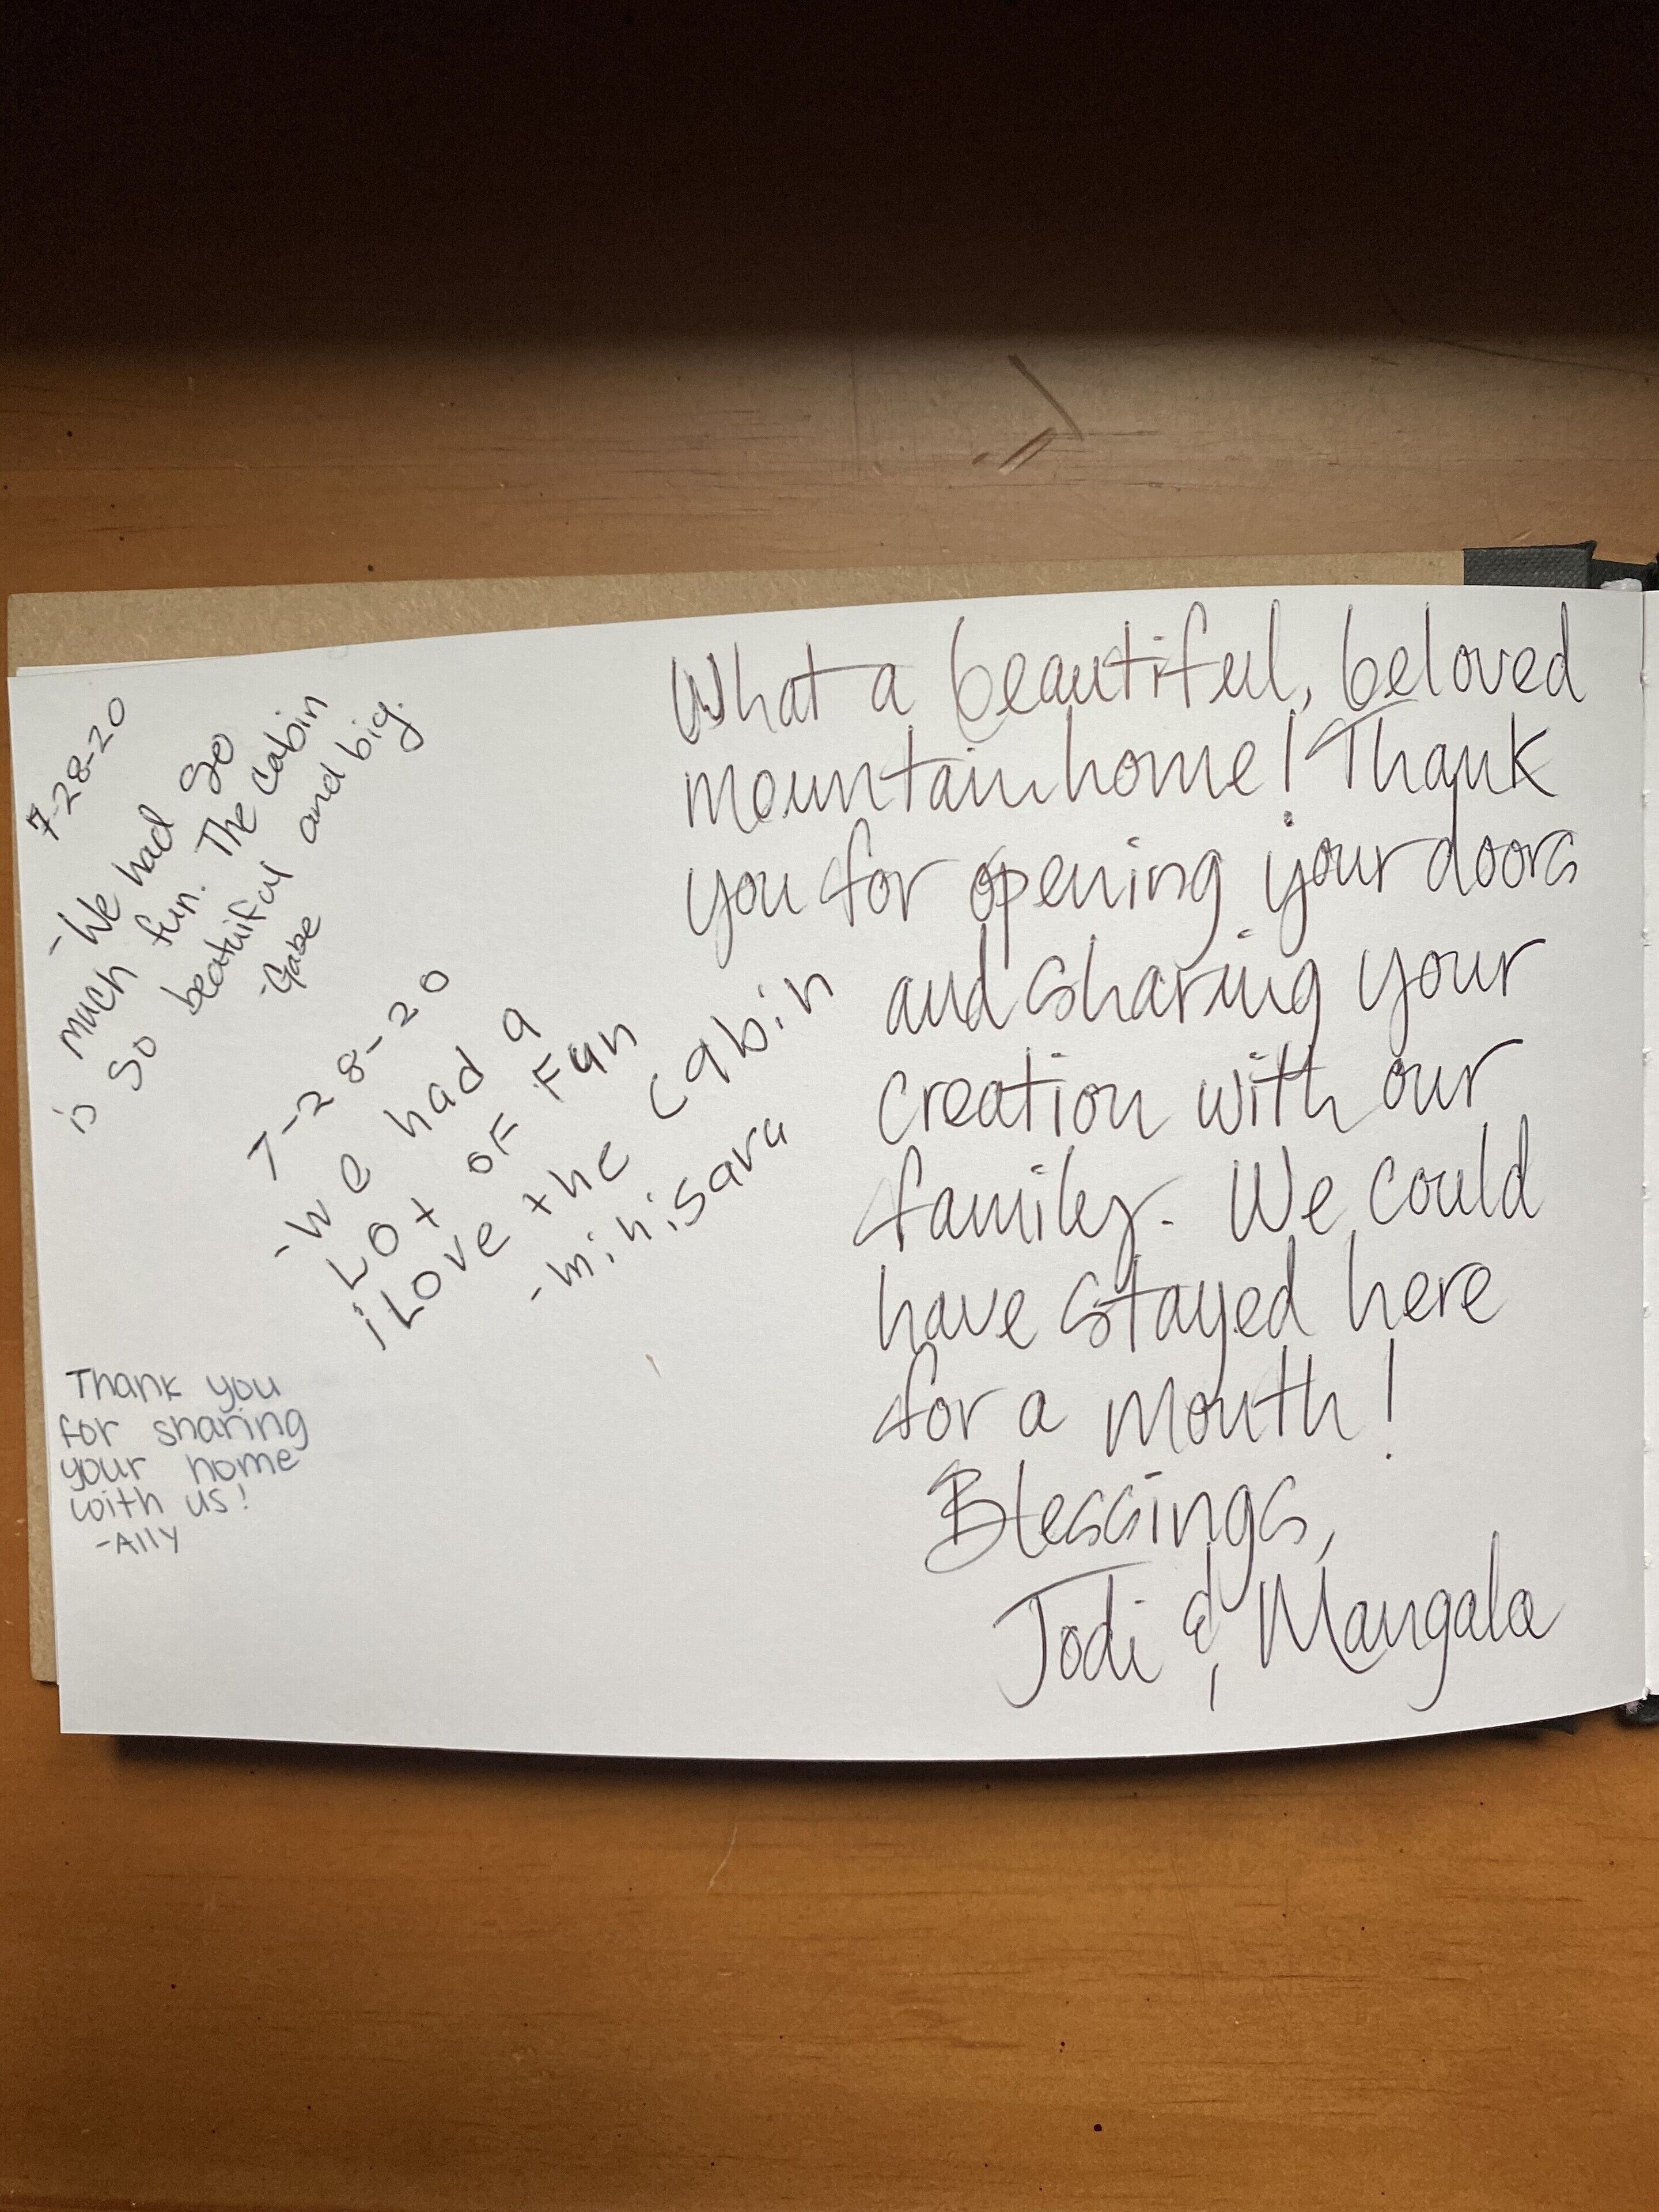 7-28-20
-We had so
much fun. The cabin
is so beatuifal and big.
-Gabe
7-28-20
-we had a
Lot oF Fun
i Love the cabin
-minisara
Thank you
for sharing
your home
with us!
-Ally
What a beautiful, beloved
mountain home! Thank
you for opening your doors
and sharing your
creation with our
family. We could
have stayed here
for a month!
Blessings,
Jodi & Mangala